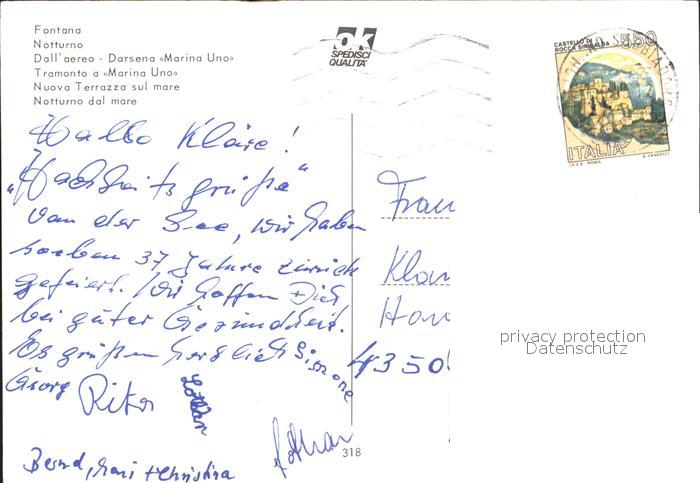 Fontana
Notturno
Dall'aereo - Darsena «Marina Uno»
Tramonto a «Marina Uno»
Nuova Terrazza sul mare
Notturno dal mare
ok
SPEDISCI
QUALITA'
CASTELLO DI
ROCCA SINIBALDA
550
ITALIA
I.P.Z.S. ROMA
E. VANGELLI
Hallo Kläre!
"Hochzeitsgrüße"
von der See, wir haben
soeben 37 Jahre zurück
gefeiert. Wir hoffen Dich
bei guter Gesundheit.
Es grüßen herzlich Simone
Georg Rita
Lothar
Bernd, + Christina
318
Frau
Klar
Han
4350
privacy protection
Datenschutz